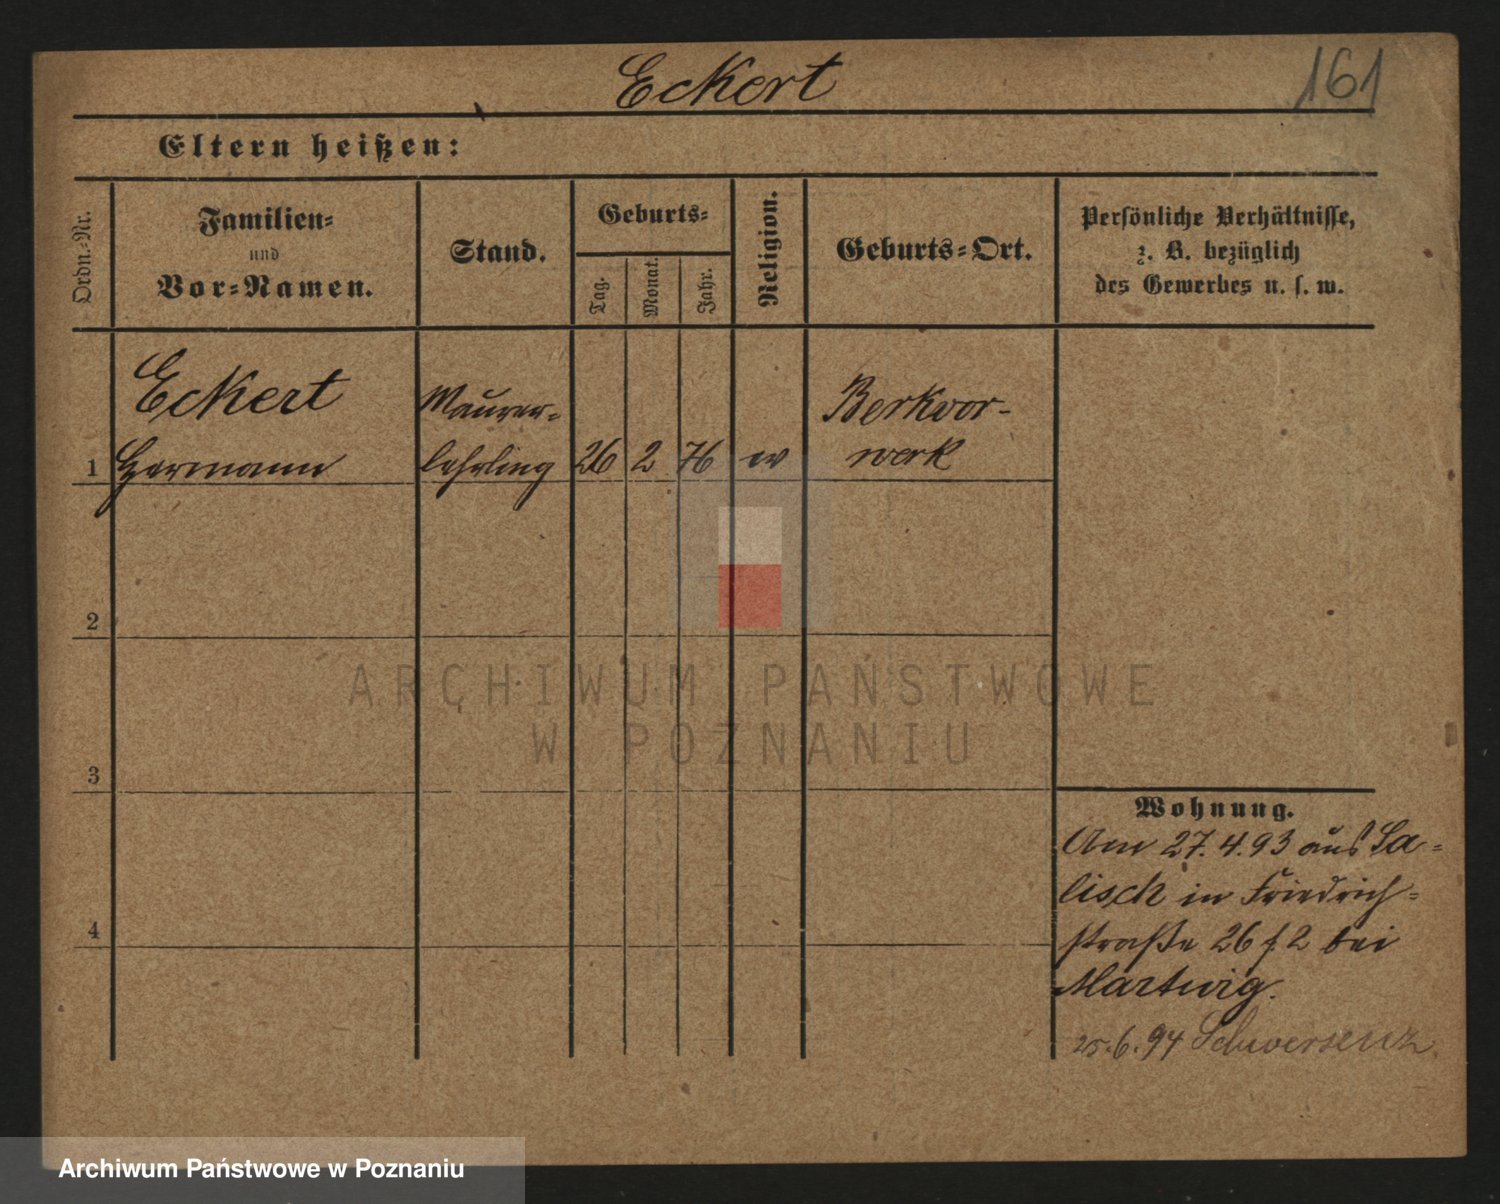 Eckert
161
Eltern heißen:
Ordn.-Nr.
Familien-
und
Vor-Namen.
Stand.
Geburts-
Tag.
Monat.
Jahr.
Religion.
Geburts-Ort.
Persönliche Verhältnisse,
z. B. bezüglich
des Gewerbes u. s. w.
Eckert
Maurer-
Berkvor-
1 Hermann lehrling 26 2 76 ev werk
2
3
4
Wohnung.
Am 27.4.93 aus Sa-
lisch in Friedrich-
straße 26 f 2 bei
Martwig.
25.6.94 Schwersenz.
ARCHIWUM PAŃSTWOWE
W POZNANIU
Archiwum Państwowe w Poznaniu